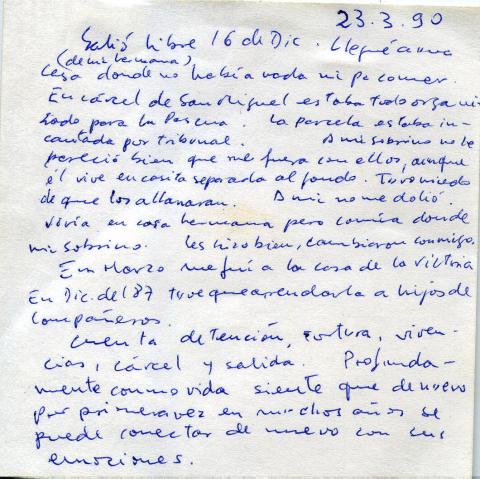 23.3.90
Salió libre 16 de Dic. Llegué a una
(de mi hermana)
casa donde no había nada ni pa comer.
En cárcel de San Miguel estaba todo organi
zado para la Pascua. La parcela estaba in-
cautada por tribunal. A mi sobrino no le
pareció bien que me fuera con ellos, aunque
él vive en casita separada al fondo. Tuvo miedo
de que los allanaran. A mi no me dolió.
Vivía en casa hermana pero comía donde
mi sobrino. Les hizo bien, cambiaron conmigo.
En Marzo me fui a la casa de la Victoria
En Dic. del 87 tuve que arrendarla a hijos de
compañeros.
Cuenta detención, tortura, viven-
cias, cárcel y salida. Profunda-
mente conmovida siente que de nuevo
por primera vez en muchos años se
puede conectar de nuevo con sus
emociones.